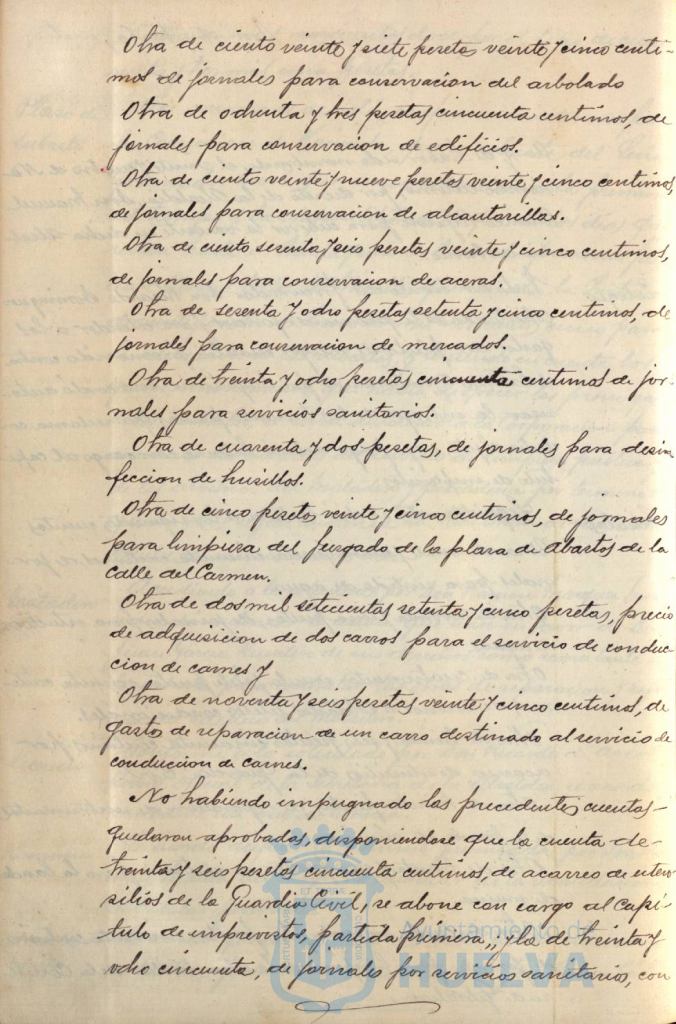 Otra de ciento veinte y siete pesetas veinte y cinco centi-
mos de jornales para conservacion del arbolado
Otra de ochenta y tres pesetas cincuenta centimos, de
jornales para conservacion de edificios.
Otra de ciento veinte y nueve pesetas veinte y cinco centimos,
de jornales para conservacion de alcantarillas.
Otra de ciento sesenta y seis pesetas veinte y cinco centimos,
de jornales para conservacion de aceras.
Otra de sesenta y ocho pesetas setenta y cinco centimos, de
jornales para conservacion de mercados.
Otra de treinta y ocho pesetas cincuenta centimos de jor-
nales para servicios sanitarios.
Otra de cuarenta y dos pesetas, de jornales para desin
feccion de husillos.
Otra de cinco pesetas veinte y cinco centimos, de jornales
para limpieza del Juzgado de la plaza de Abastos de la
calle del Carmen.
Otra de dos mil setecientas setenta y cinco pesetas, precio
de adquisicion de dos carros para el servicio de conduc-
cion de carnes y
Otra de noventa y seis pesetas veinte y cinco centimos, de
gasto de reparacion de un carro destinado al servicio de
conduccion de carnes.
No habiendo impugnado las precedentes cuentas-
quedaron aprobadas, disponiendose que la cuenta de-
treinta y seis pesetas cincuenta centimos, de acarreo de uten-
silios de la Guardia Civil, se abone con cargo al Capi-
tulo de imprevistos, partida primera,; y la de treinta y
ocho cincuenta, de jornales por servicios sanitarios, con
Ayuntamiento de
HUELVA